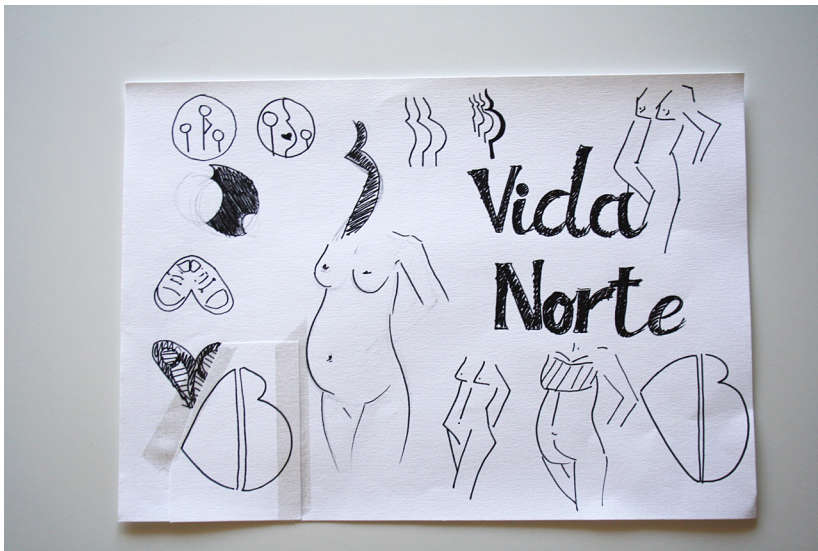 Vida
Norte